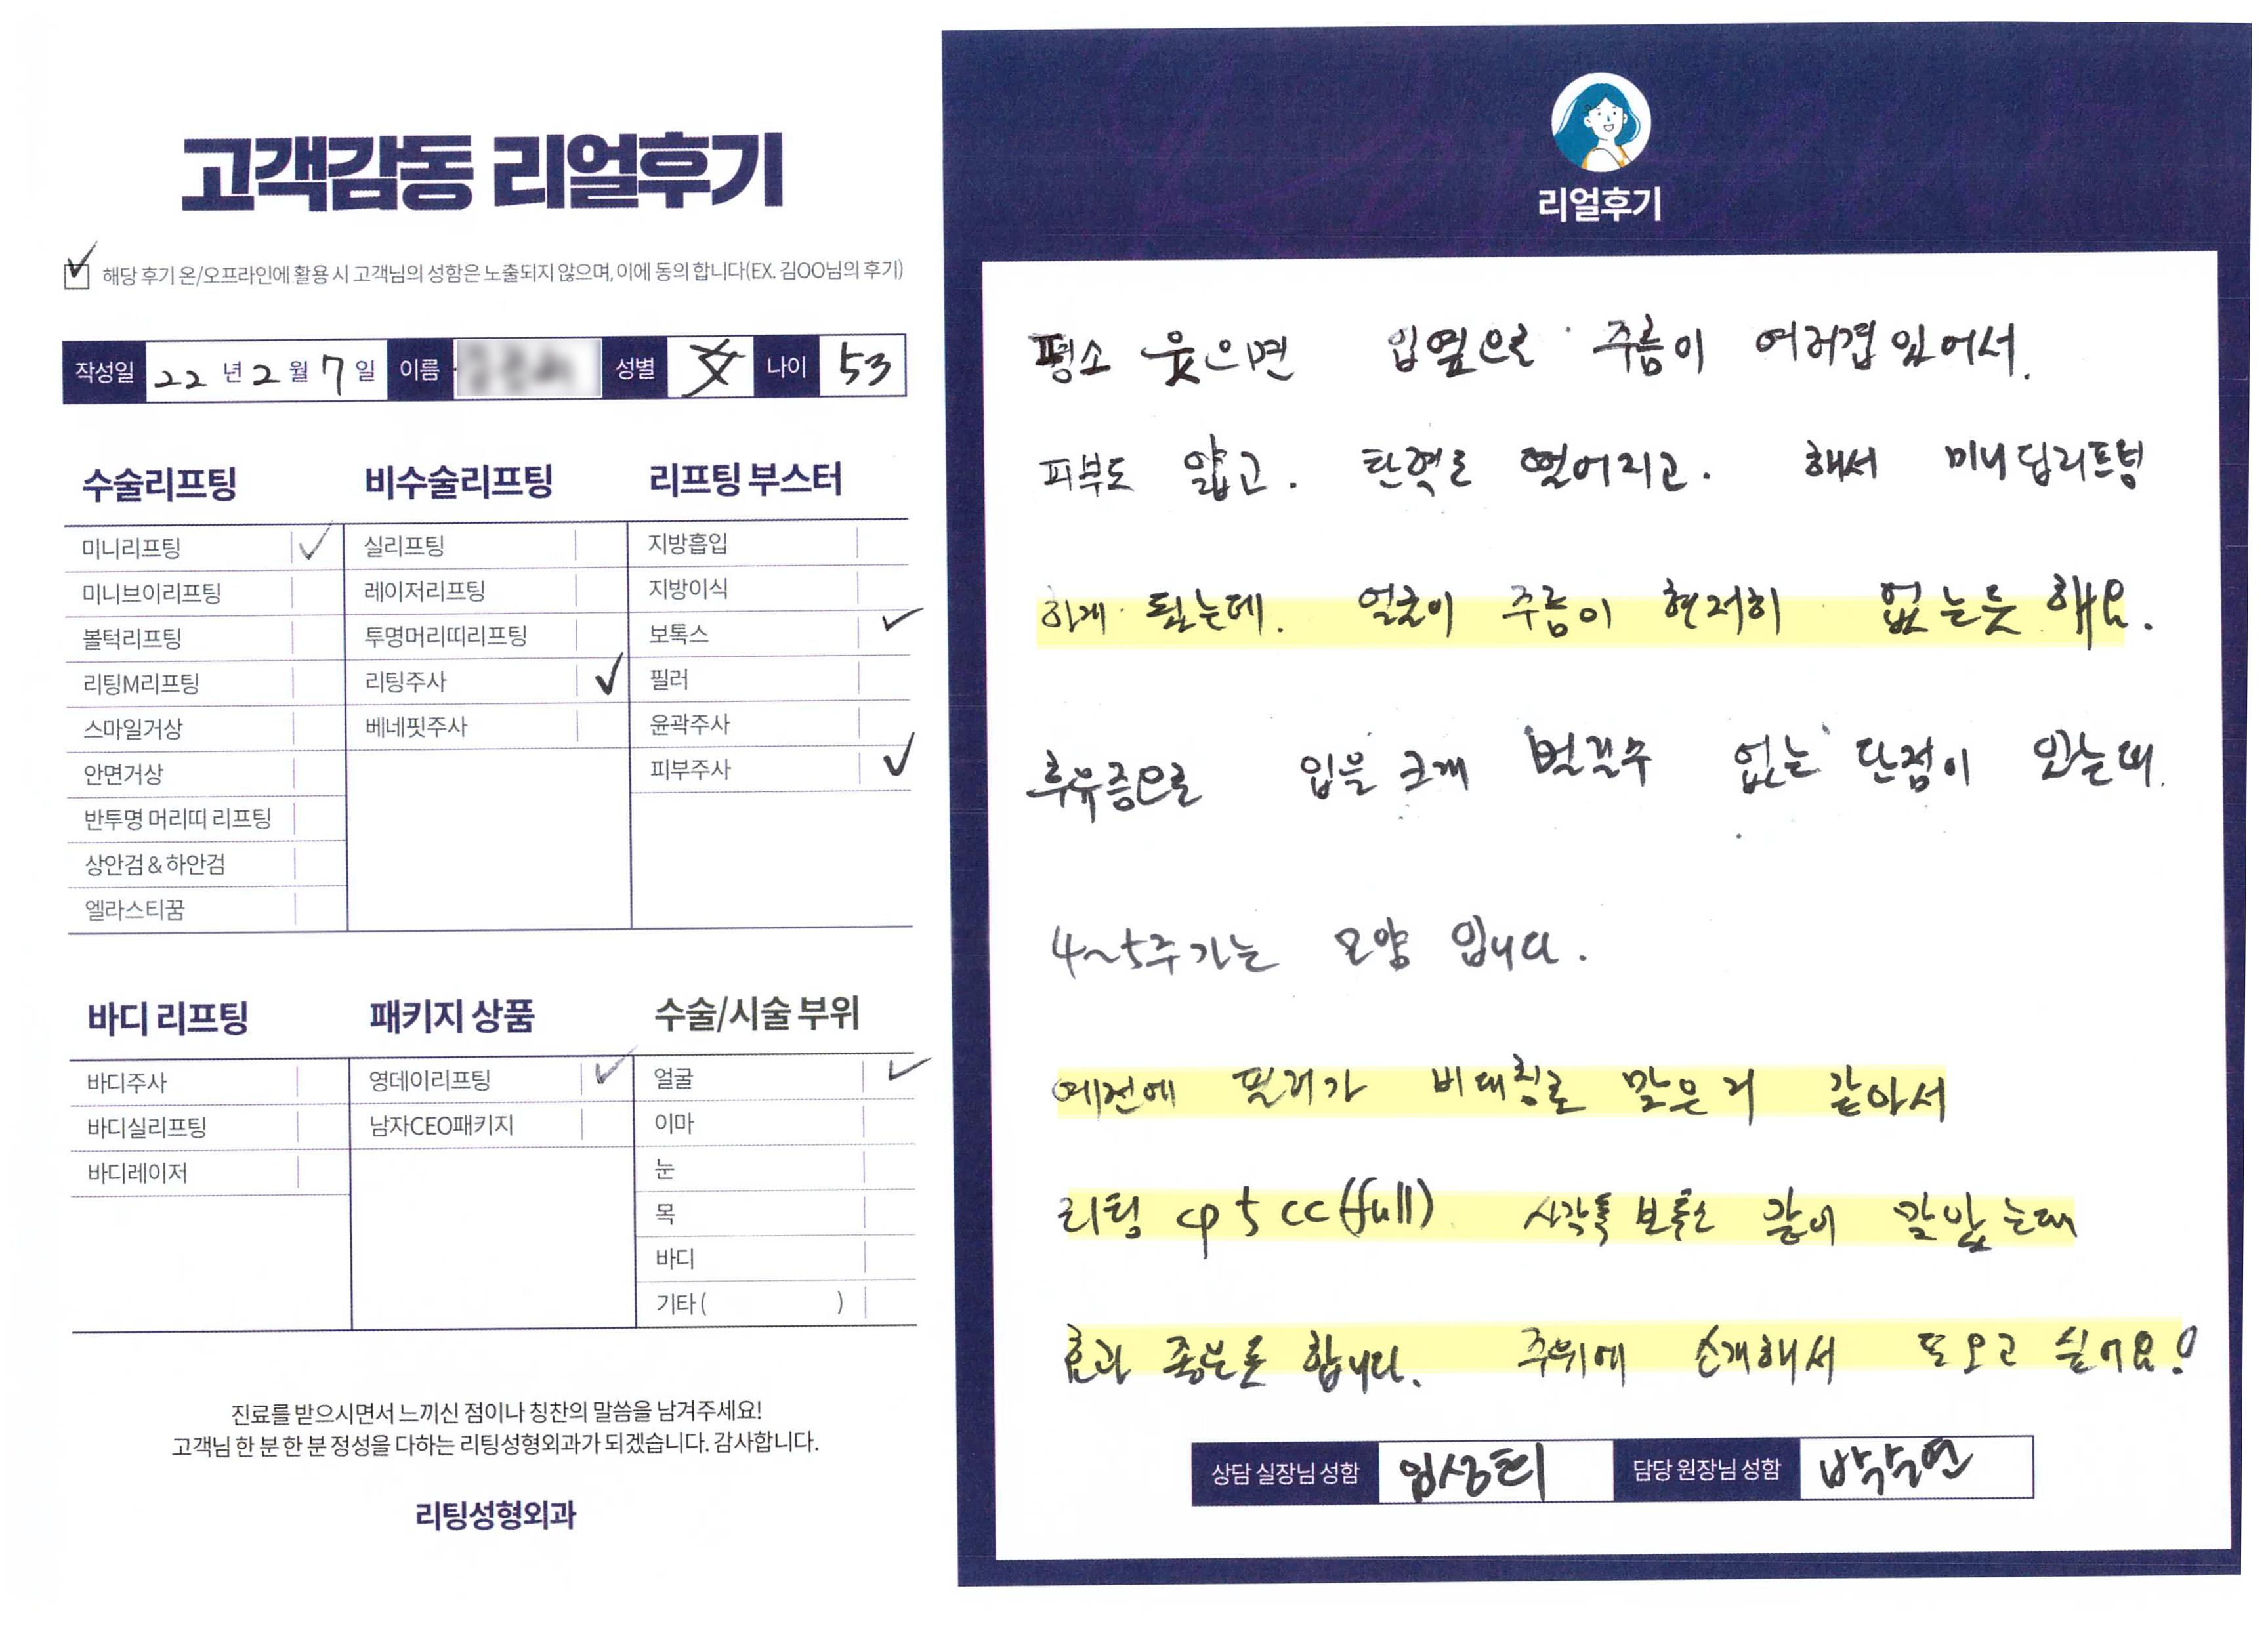 고객감동 리얼후기
해당 후기 온/오프라인에 활용 시 고객님의 성함은 노출되지 않으며, 이에 동의 합니다(EX. 김OO님의 후기)
작성일 22 년 2 월 7 일 이름 성별 女 나이 53
수술리프팅 비수술리프팅 리프팅 부스터
미니리프팅 실리프팅 지방흡입
미니브이리프팅 레이저리프팅 지방이식
볼턱리프팅 투명머리띠리프팅 보톡스
리팅M리프팅 리팅주사 필러
스마일거상 베네핏주사 윤곽주사
안면거상 피부주사
반투명 머리띠 리프팅
상안검 & 하안검
엘라스티꿈
바디 리프팅 패키지 상품 수술/시술 부위
바디주사 영데이리프팅 얼굴
바디실리프팅 남자CEO패키지 이마
바디레이저 눈
목
바디
기타 ( )
진료를 받으시면서 느끼신 점이나 칭찬의 말씀을 남겨주세요!
고객님 한 분 한 분 정성을 다하는 리팅성형외과가 되겠습니다. 감사합니다.
리팅성형외과
리얼후기
평소 웃으면 입옆으로 주름이 여러겹 있어서.
피부도 얇고. 탄력도 떨어지고. 해서 미니딥리프팅
하게 됬는데. 얼굴이 주름이 현저히 없는듯 해요.
후유증으로 입을 크게 벌릴수 없는 단점이 있는데.
4~5주 가는 모양 입니다.
예전에 필러가 비대칭로 맞은 거 같아서
리팅 cp 5 cc (full) 사각턱 보톡스 같이 맞았는데
효과 좋은듯 합니다. 주위에 소개해서 또 오고 싶어요!
상담 실장님 성함 임상희 담당 원장님 성함 박수연